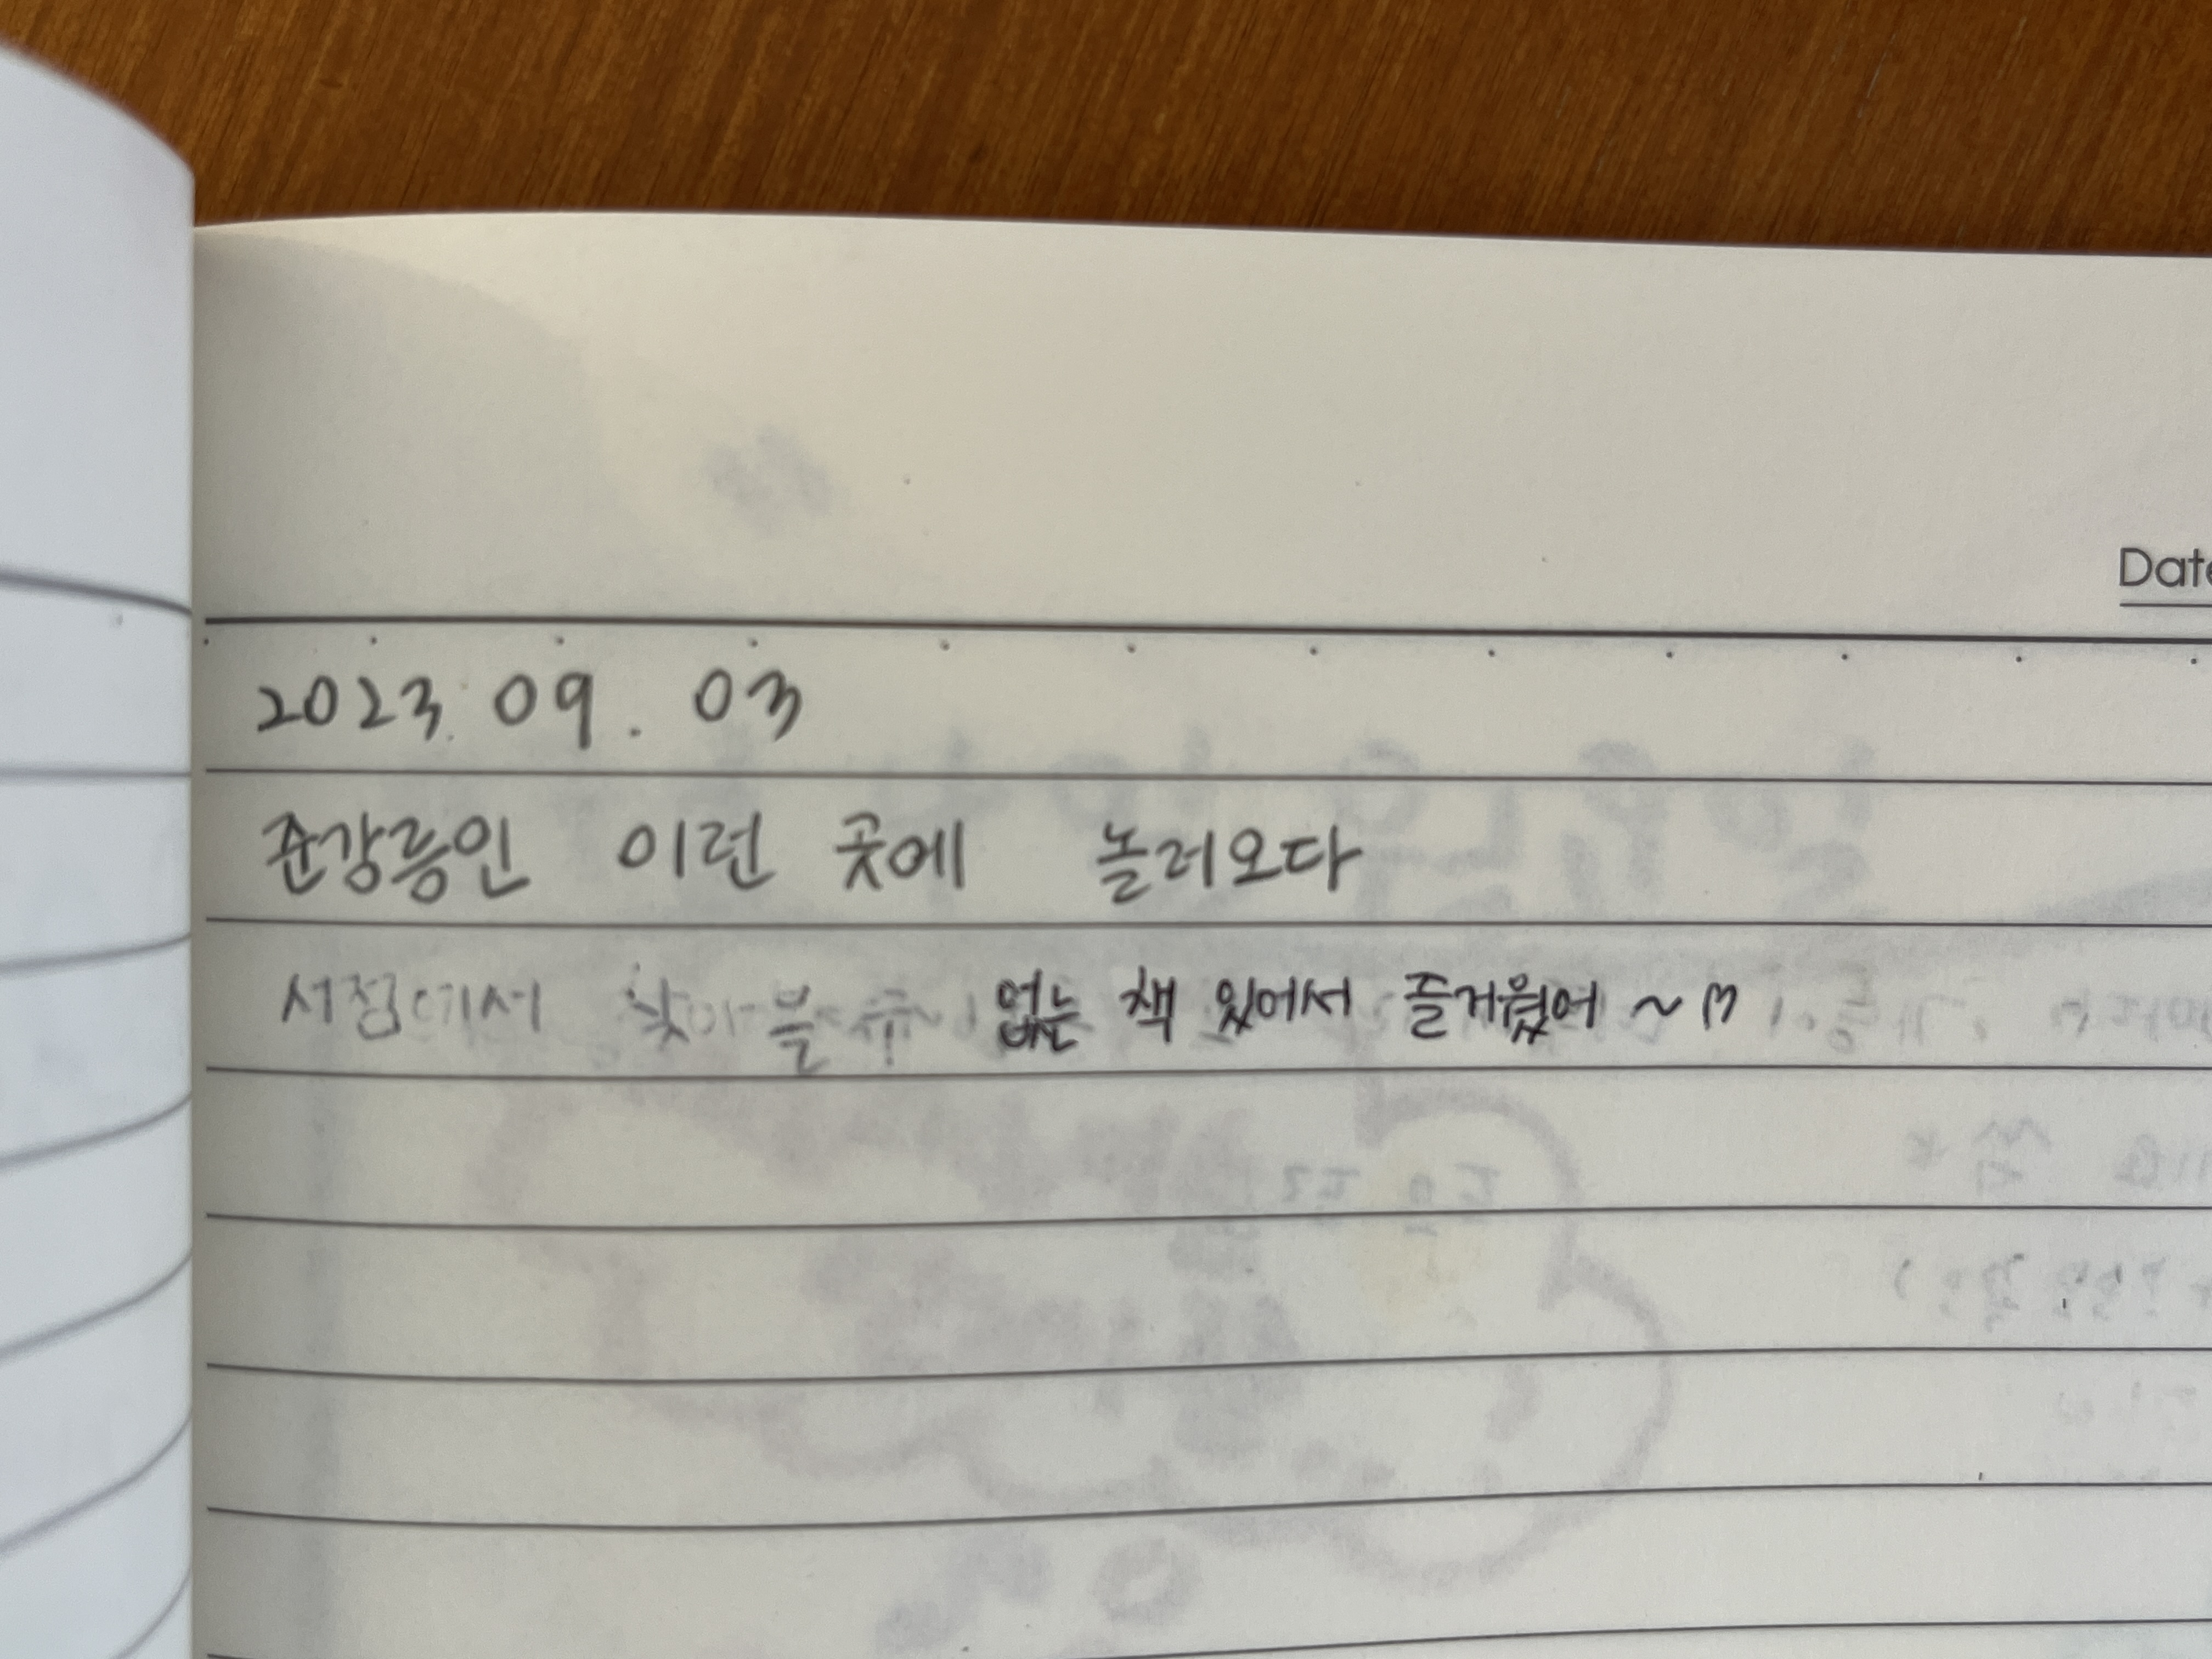 Date
2023. 09. 03
준강릉인 이런 곳에 놀러오다
서점에서 찾아볼 수 없는 책 있어서 즐거웠어 ~